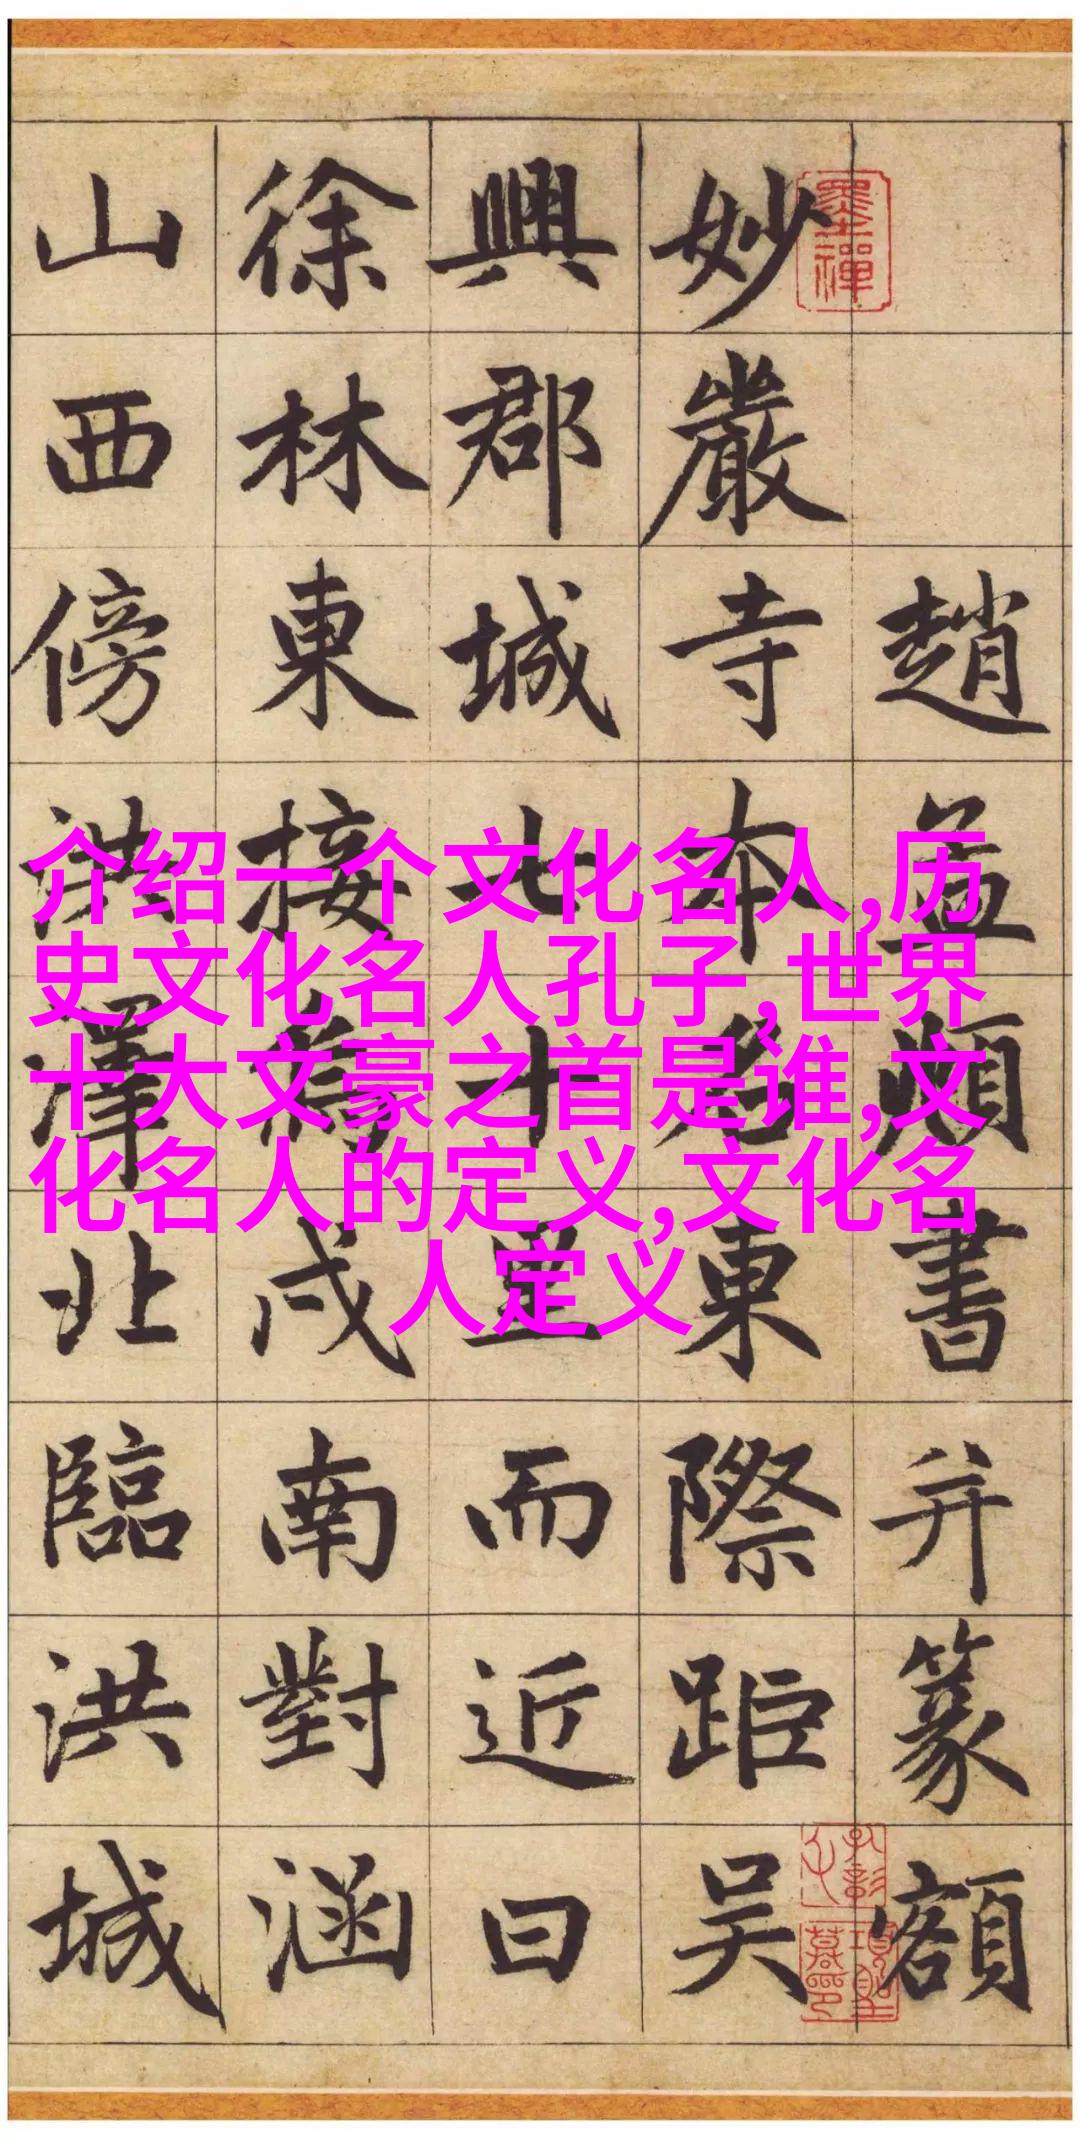 趙孟頫書并篆額
妙嚴寺本名東際距吳
興郡城七十里而近曰
徐林東接烏戍南對涵
山西傍洪澤北臨洪城
墨禪
介绍一个文化名人,历
史文化名人孔子,世界
十大文豪之首是谁,文
化名人的定义,文化名
人定义